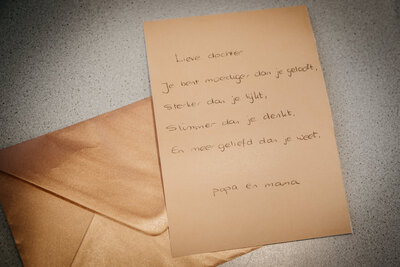 Lieve dochter
Je bent moediger dan je gelooft,
Sterker dan je lijkt,
Slimmer dan je denkt,
En meer geliefd dan je weet,
papa en mama